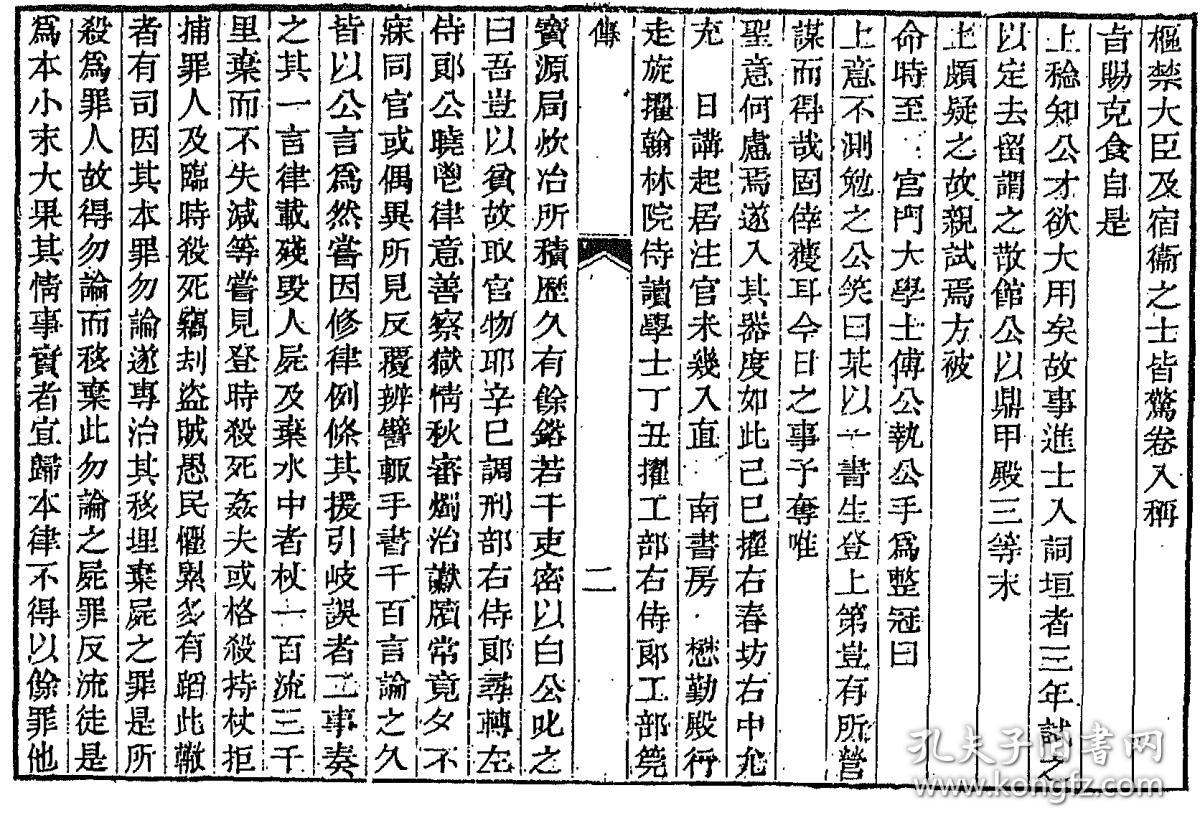 樞禁大臣及宿衞之士皆驚卷入稱
旨賜克食自是
上稔知公才欲大用矣故事進士入詞垣者三年試之
以定去留謂之散館公以鼎甲殿三等末
上頗疑之故親試焉方被
命時至 宮門大學士傅公執公手為整冠曰
上意不測勉之公笑曰某以一書生登上第豈有所營
謀而得哉固倖獲耳今日之事予奪唯
聖意何慮焉遂入其器度如此己巳擢右春坊右中允
充 日講起居注官未幾入直 南書房 懋勤殿行
走旋擢翰林院侍讀學士丁丑擢工部右侍郎工部筦
傳 二
寶源局炊冶所積歷久有餘銘若干吏密以白公叱之
曰吾豈以貧故取官物耶辛巳調刑部右侍郎尋轉左
侍郎公曉鬯律意善察獄情秋審燭治讞牘常竟夕不
寐同官或偶異所見反覆辨譬輒手書千百言論之久
皆以公言為然嘗因修律例條其援引岐誤者二事奏
之其一言律載殘毀人屍及棄水中者杖一百流三千
里棄而不失減等嘗見登時殺死姦夫或格殺持杖拒
捕罪人及臨時殺死竊刦盜賊愚民懼累多有蹈此轍
者有司因其本罪勿論遂專治其移埋棄屍之罪是所
殺為罪人故得勿論而移棄此勿論之屍罪反流徒是
為本小末大果其情事實者宜歸本律不得以餘罪他
孔夫子旧书网
www.kongfz.com